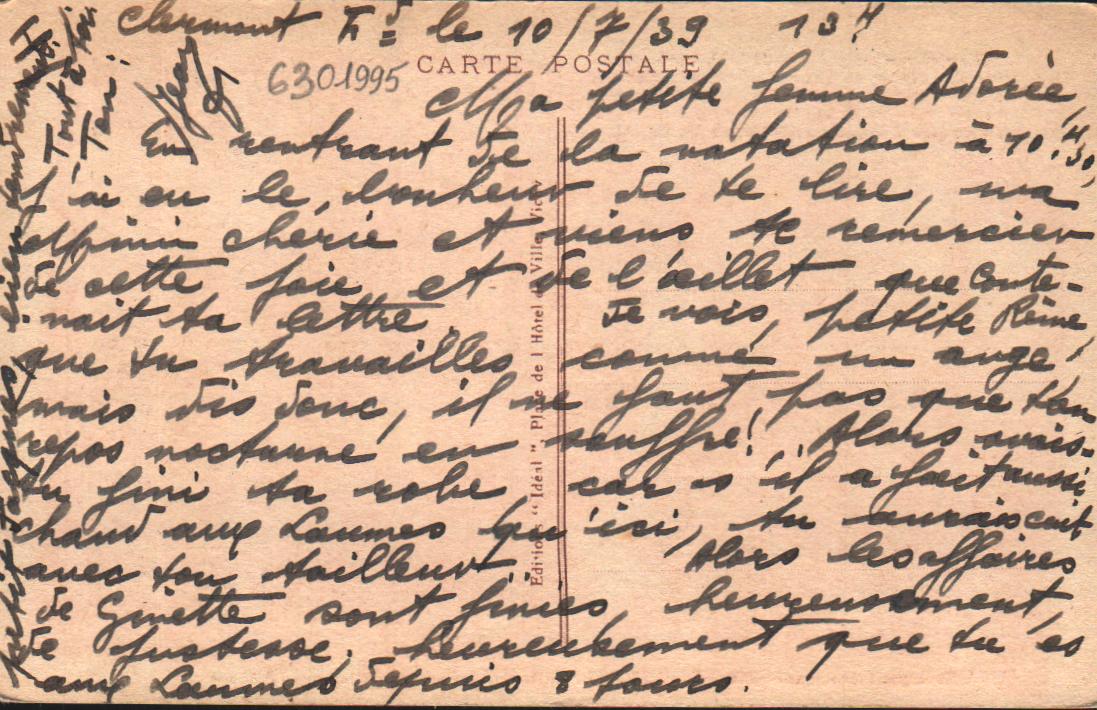 Clermont Fd le 10/7/39 13H
CARTE POSTALE
6301995
Ma petite femme Adorée,
En rentrant de la natation à 10H30,
j'ai eu le bonheur de te lire, ma
chérie et viens te remercier
de cette joie et de l'œillet que conte-
nait ta lettre. Je vois, petite Reine,
que tu travailles comme un ange,
mais dis donc, il ne faut pas que ton
repos nocturne en souffre! Alors avais-
tu fini ta robe car s'il a fait aussi
chaud aux Laumes qu'ici, tu aurais cuit
avec ton tailleur. Alors les affaires
de Ginette sont finies, heureusement,
de justesse, heureusement que tu es
aux Laumes depuis 8 jours.
tendrement.
Tout à toi
Ton
Jean
Editions "Idéal", Place de l'Hôtel de Ville, Vichy